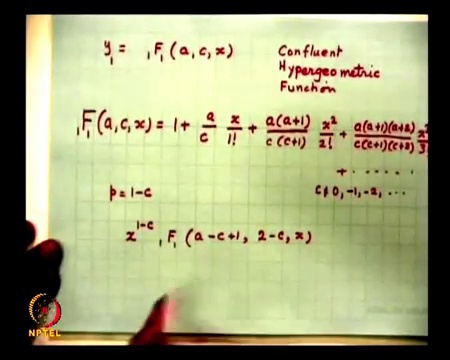 y₁ = ₁F₁ (a, c, x) Confluent
Hypergeometric
Function
₁F₁(a, c, x) = 1 + a/c x/1! + a(a+1)/c(c+1) x²/2! + a(a+1)(a+2)/c(c+1)(c+2) x³/3!
+ ......
c ≠ 0, -1, -2, ...
p = 1-c
x^{1-c} ₁F₁ (a-c+1, 2-c, x)
NPTEL